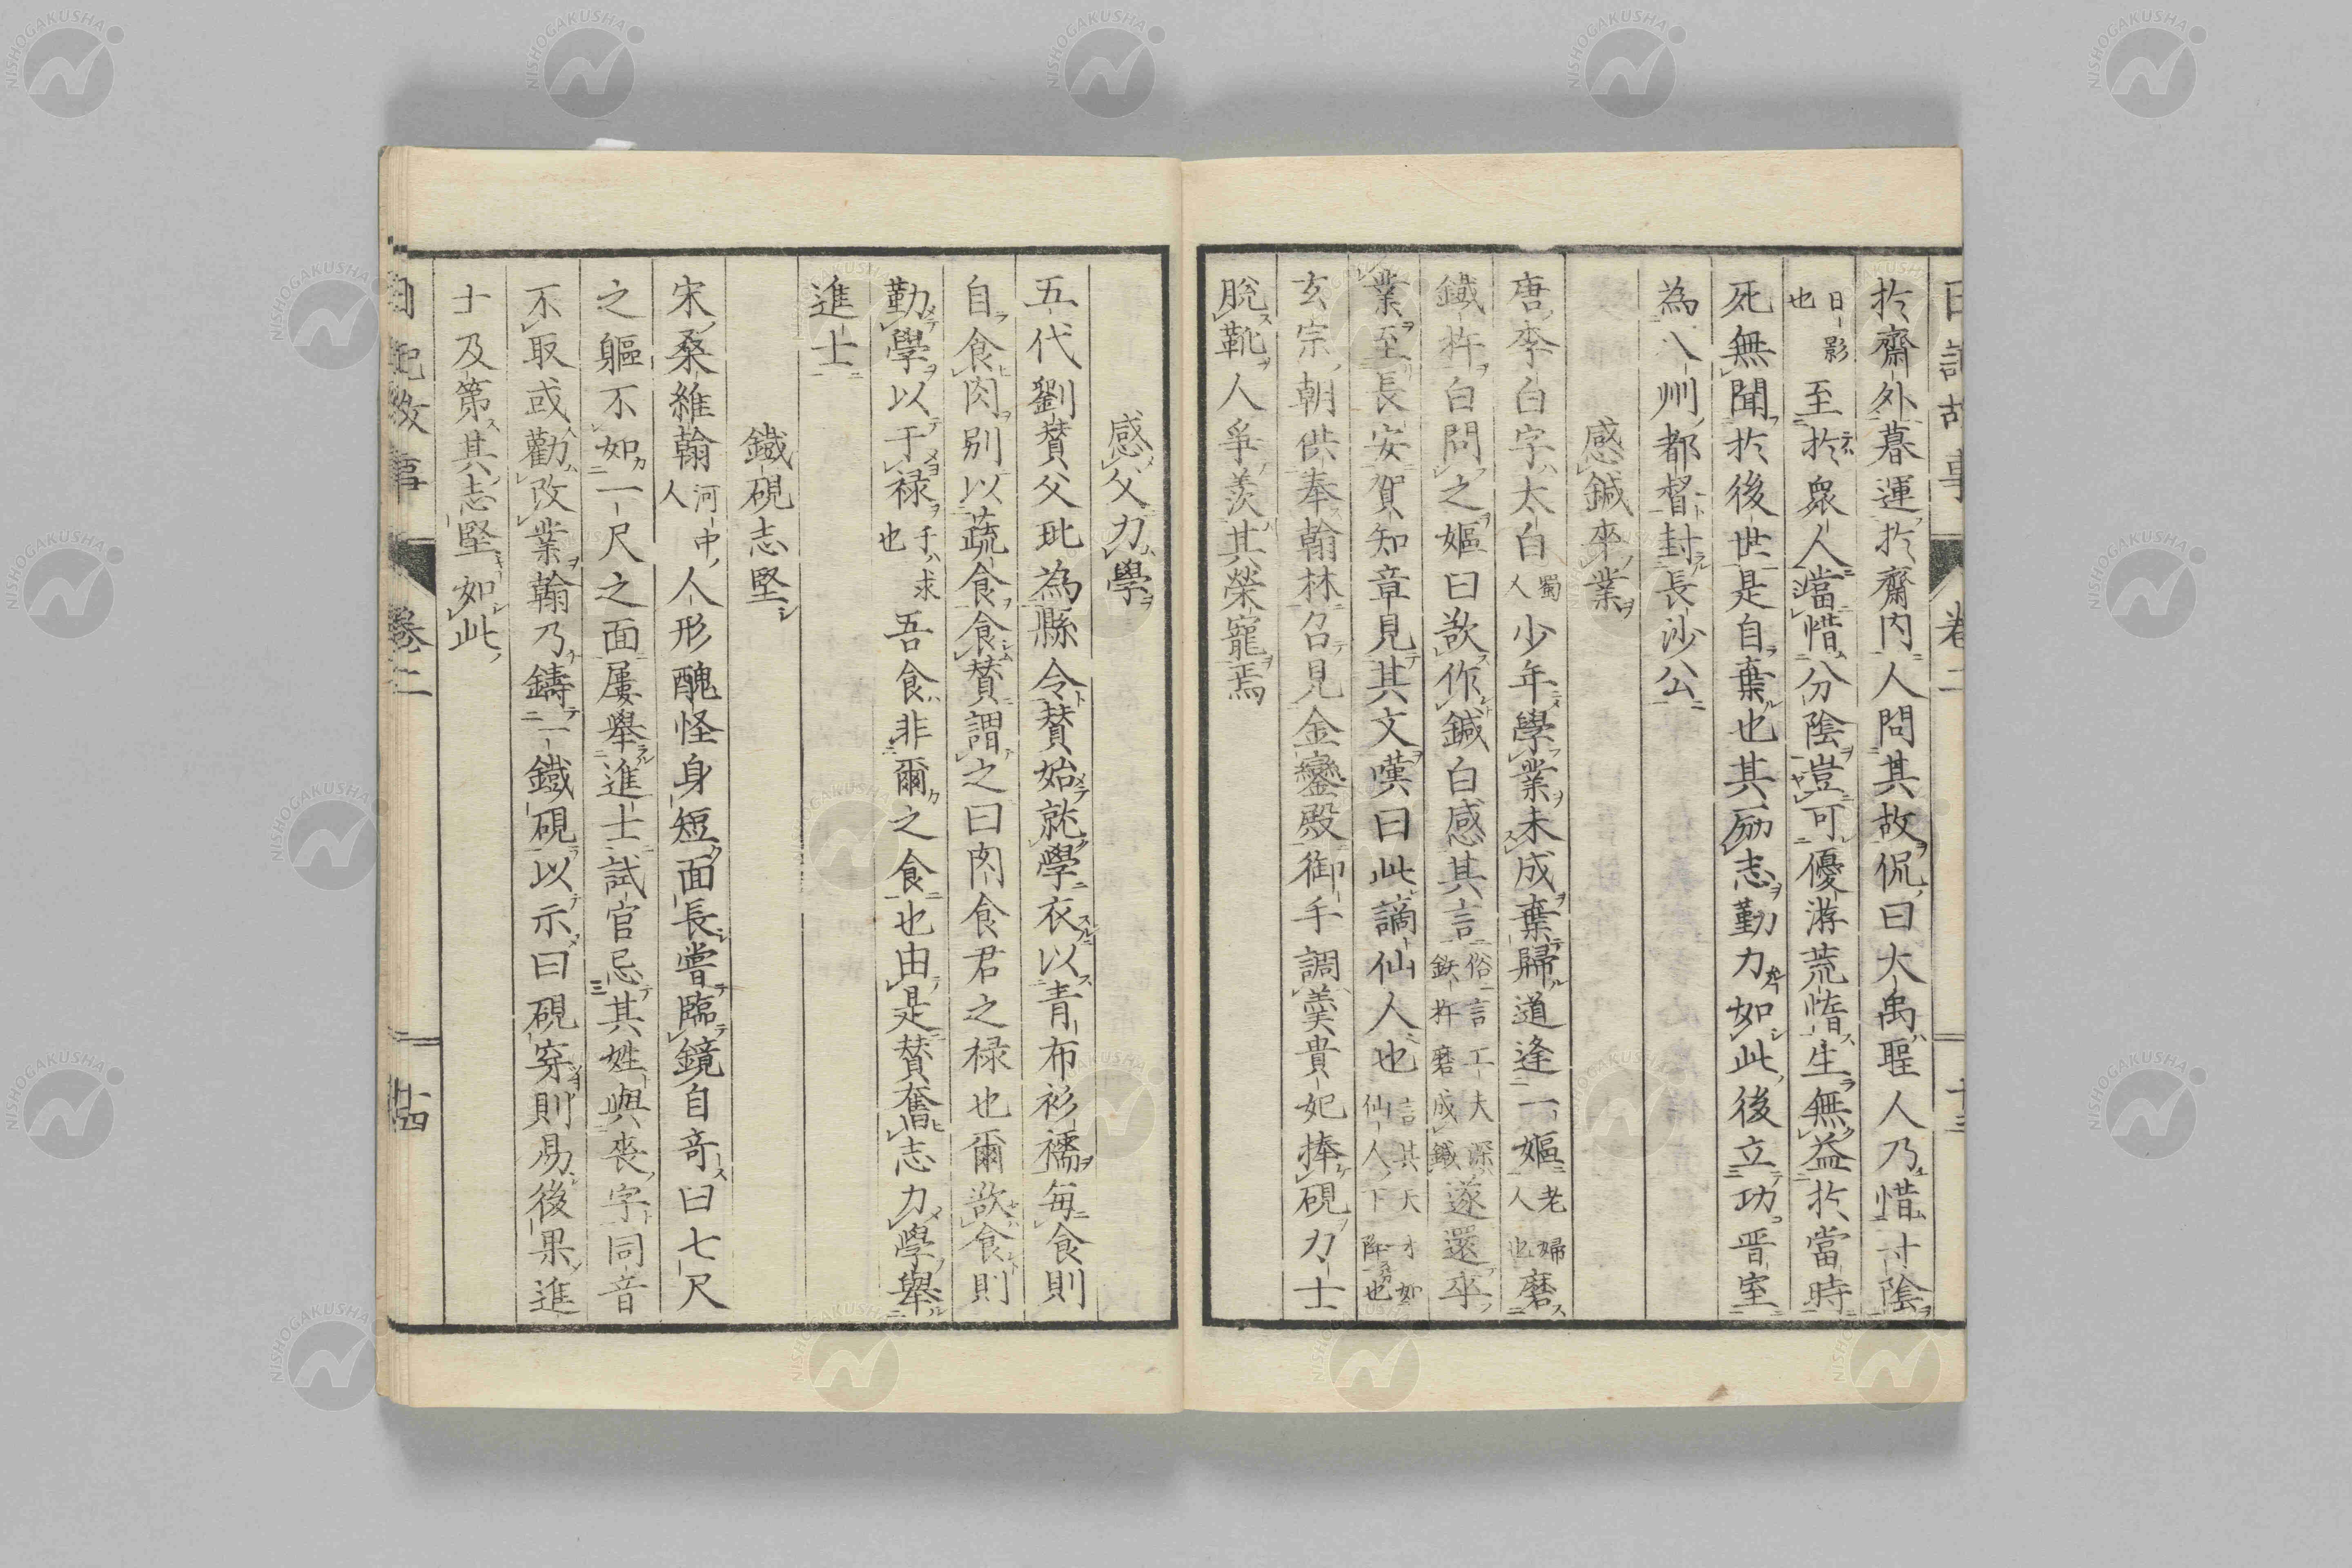 於齋外暮運於齋内人問其故侃曰大禹聖人乃惜寸陰
日影也至於衆人當惜分陰豈可優游荒惰生無益於當時
死無聞於後世是自棄也其励志勤力如此後立功晋室
為八州都督封長沙公
感鍼卒業
唐李白字太白蜀人少年學業未成棄歸道逢一嫗老婦人也磨
鐵杵白問之嫗曰欲作鍼白感其言俗言工夫深鉄杵磨成鍼遂還卒
業至長安賀知章見其文嘆曰此謫仙人也言其天才如仙人下降也
玄宗朝供奉翰林召見金鑾殿御手調羹貴妃捧硯力士
脱靴人爭羨其榮寵焉
感父力學
五代劉賛父玭為縣令賛始就學衣以青布衫襦每食則
自食肉別以蔬食食賛謂之曰肉食君之禄也爾欲食則
勤學以于禄于求也吾食非爾之食也由是賛奮志力學舉
進士
鐵硯志堅
宋桑維翰河中人人形醜怪身短面長嘗臨鏡自奇曰七尺
之軀不如一尺之面屢舉進士試官忌其姓與喪字同音
不取或勸改業翰乃鑄一鐵硯以示曰硯穿則易後果進
士及第其志堅如此
日記故事 卷二 十四
NISHOGAKUSHA